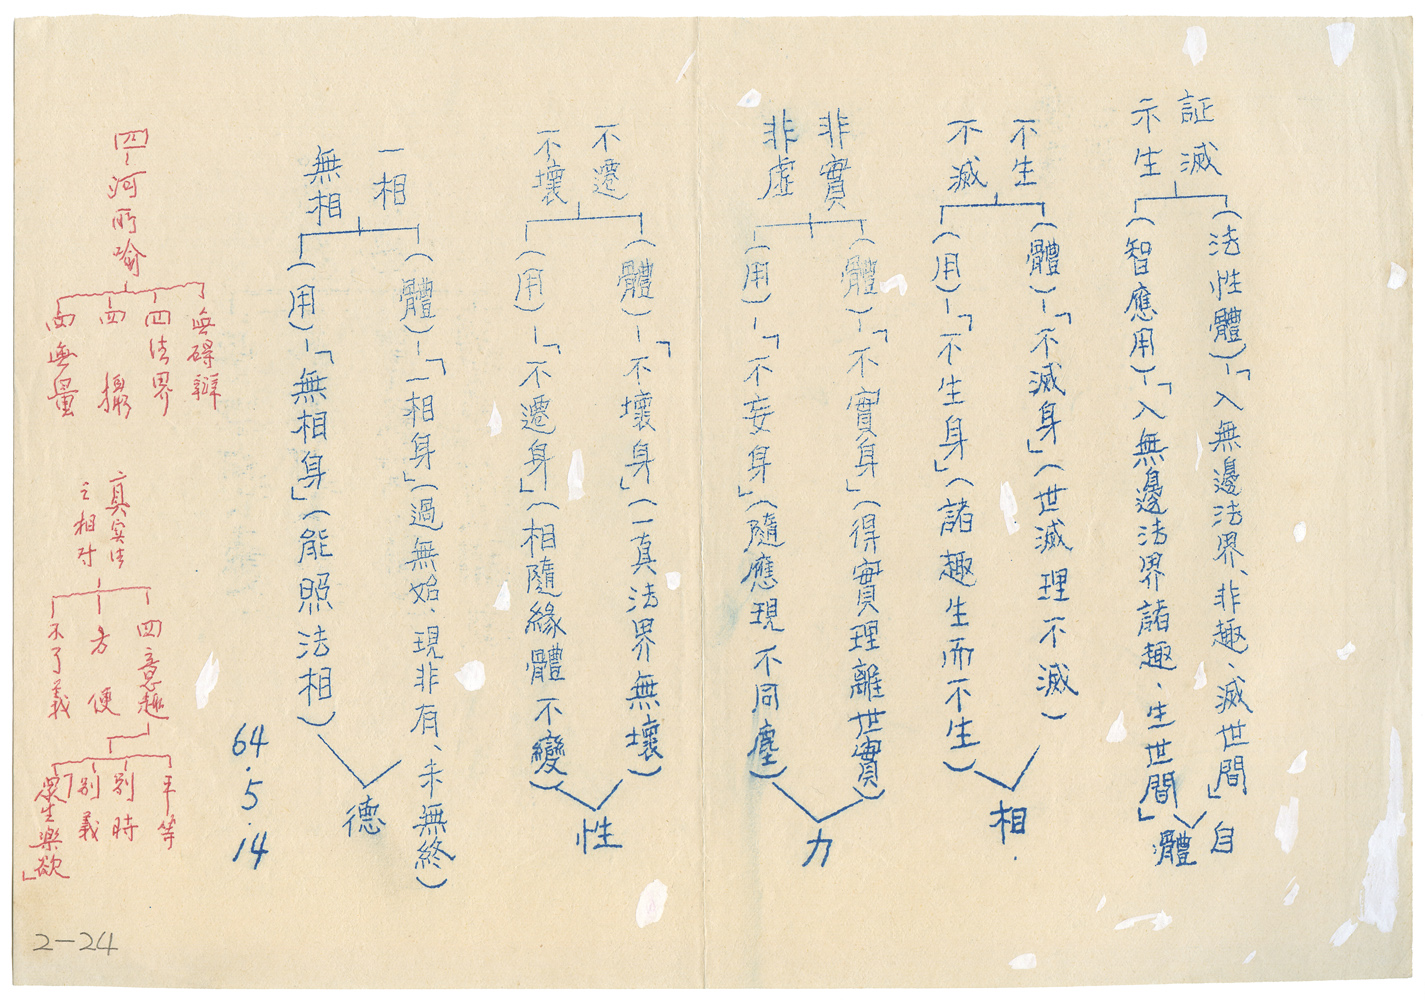 証滅
示生
(法性體)-「入無邊法界、非趣、滅世間」
(智應用)-「入無邊法界諸趣、生世間」
自
體
不生
不滅
(體)-「不滅身」(世滅理不滅)
(用)-「不生身」(諸趣生而不生)
相
非實
非虛
(體)-「不實身」(得實理離世實)
(用)-「不妄身」(隨應現不同塵)
力
不遷
不壞
(體)-「不壞身」(一真法界無壞)
(用)-「不遷身」(相隨緣體不變)
性
一相
無相
(體)-「一相身」(過無始、現非有、未無終)
(用)-「無相身」(能照法相)
德
64.5.14
四-河所喻
無碍辯
四法界
四攝
四無量
真实法
之相对
四意趣
方便
不了義
平等
別時
別義
眾生樂欲」
2-24